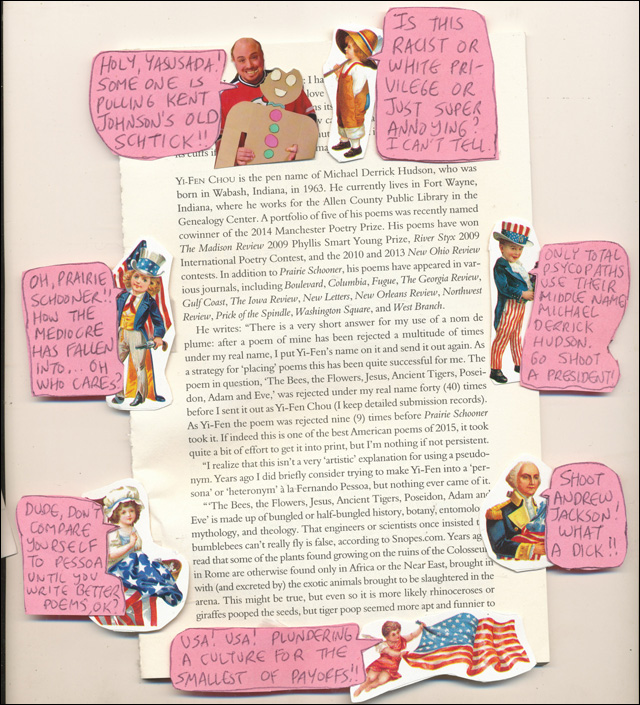 HOLY, YASUSADA!
SOMEONE IS
PULLING KENT
JOHNSON'S OLD
SCHTICK!!
IS THIS
RACIST OR
WHITE PRI-
VILEGE OR
JUST SUPER
ANNOYING?
I CAN'T TELL!
: I ha
love
its cuffs i
YI-FEN CHOU is the pen name of Michael Derrick Hudson, who was
born in Wabash, Indiana, in 1963. He currently lives in Fort Wayne,
Indiana, where he works for the Allen County Public Library in the
Genealogy Center. A portfolio of five of his poems was recently named
cowinner of the 2014 Manchester Poetry Prize. His poems have won
The Madison Review 2009 Phyllis Smart Young Prize, River Styx 2009
International Poetry Contest, and the 2010 and 2013 New Ohio Review
contests. In addition to Prairie Schooner, his poems have appeared in var-
ious journals, including Boulevard, Columbia, Fugue, The Georgia Review,
Gulf Coast, The Iowa Review, New Letters, New Orleans Review, Northwest
Review, Prick of the Spindle, Washington Square, and West Branch.
He writes: “There is a very short answer for my use of a nom de
plume: after a poem of mine has been rejected a multitude of times
under my real name, I put Yi-Fen’s name on it and send it out again. As
a strategy for ‘placing’ poems this has been quite successful for me. The
poem in question, ‘The Bees, the Flowers, Jesus, Ancient Tigers, Posei-
don, Adam and Eve,’ was rejected under my real name forty (40) times
before I sent it out as Yi-Fen Chou (I keep detailed submission records).
As Yi-Fen the poem was rejected nine (9) times before Prairie Schooner
took it. If indeed this is one of the best American poems of 2015, it took
quite a bit of effort to get it into print, but I’m nothing if not persistent.
“I realize that this isn’t a very ‘artistic’ explanation for using a pseudo-
nym. Years ago I did briefly consider trying to make Yi-Fen into a ‘per-
sona’ or ‘heteronym’ à la Fernando Pessoa, but nothing ever came of it.
“‘The Bees, the Flowers, Jesus, Ancient Tigers, Poseidon, Adam and
Eve’ is made up of bungled or half-bungled history, botany, entomolo
mythology, and theology. That engineers or scientists once insisted t
bumblebees can’t really fly is false, according to Snopes.com. Years ag
read that some of the plants found growing on the ruins of the Colosseu
in Rome are otherwise found only in Africa or the Near East, brought in
with (and excreted by) the exotic animals brought to be slaughtered in the
arena. This might be true, but even so it is more likely rhinoceroses or
giraffes pooped the seeds, but tiger poop seemed more apt and funnier to
OH, PRAIRIE
SCHOONER!!
HOW THE
MEDIOCRE
HAS FALLEN
INTO,... OH
WHO CARES?
ONLY TOTAL
PSYCOPATHS
USE THEIR
MIDDLE NAME
MICHAEL
DERRICK
HUDSON.
GO SHOOT
A PRESIDENT!
DUDE, DON'T
COMPARE
YOURSELF
TO PESSOA
UNTIL YOU
WRITE BETTER
POEMS, OK?
SHOOT
ANDREW
JACKSON!
WHAT
A DICK!!
USA! USA! PLUNDERING
A CULTURE FOR THE
SMALLEST OF PAYOFFS!!